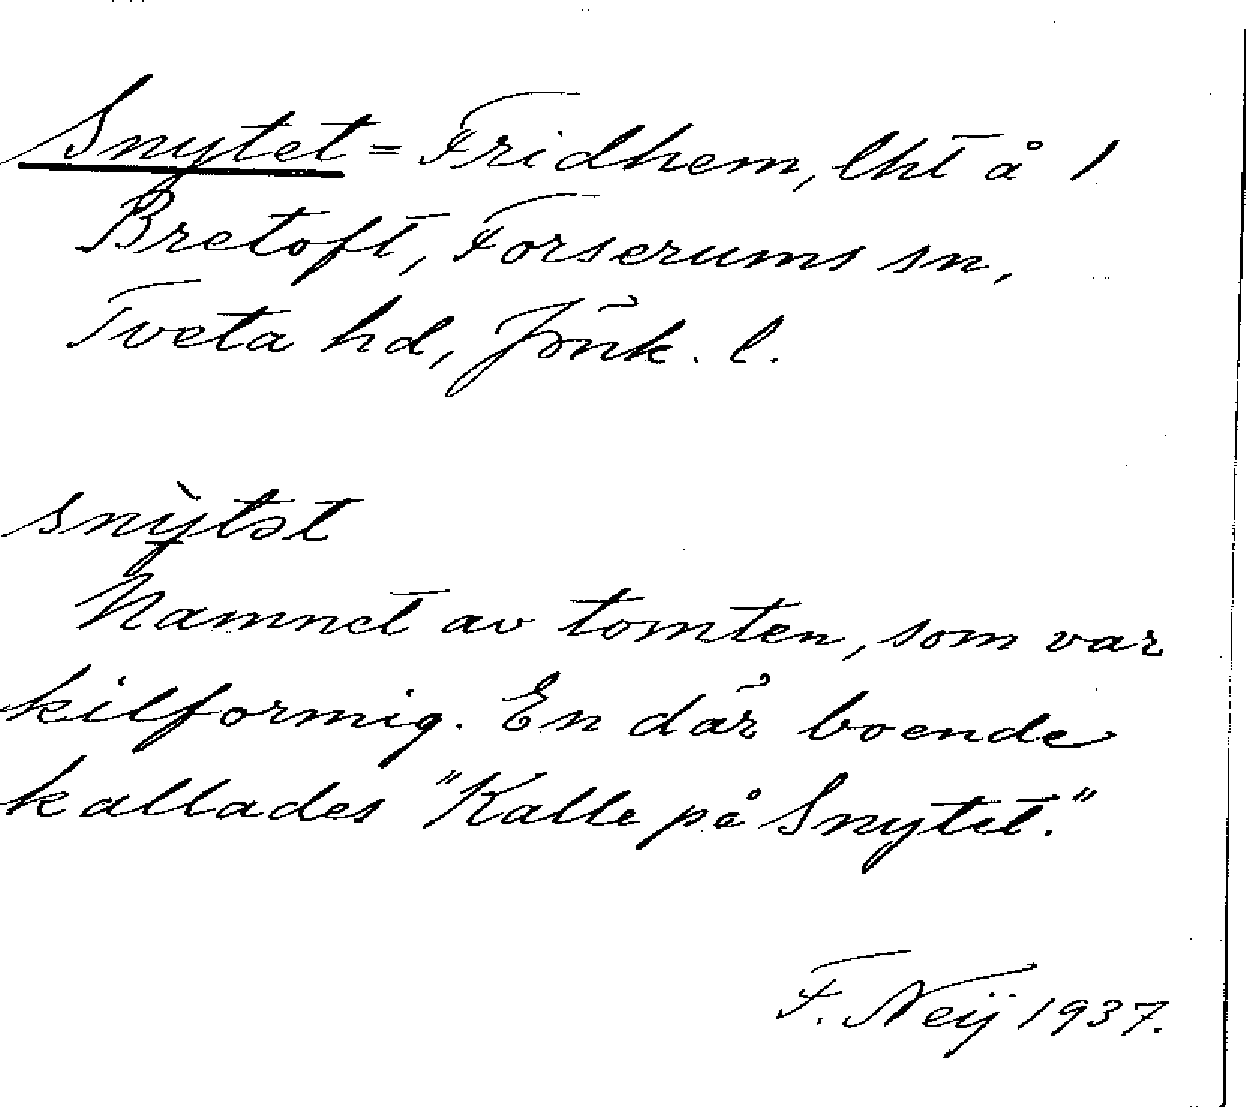 Snytet = Fridhem, lht å 1
Bretoft, Forserums sn,
Tveta hd, Jönk. l.
snỳtət
Namnet av tomten, som var
kilformig. En där boende
kallades "Kalle på Snytet."
F. Neij 1937.